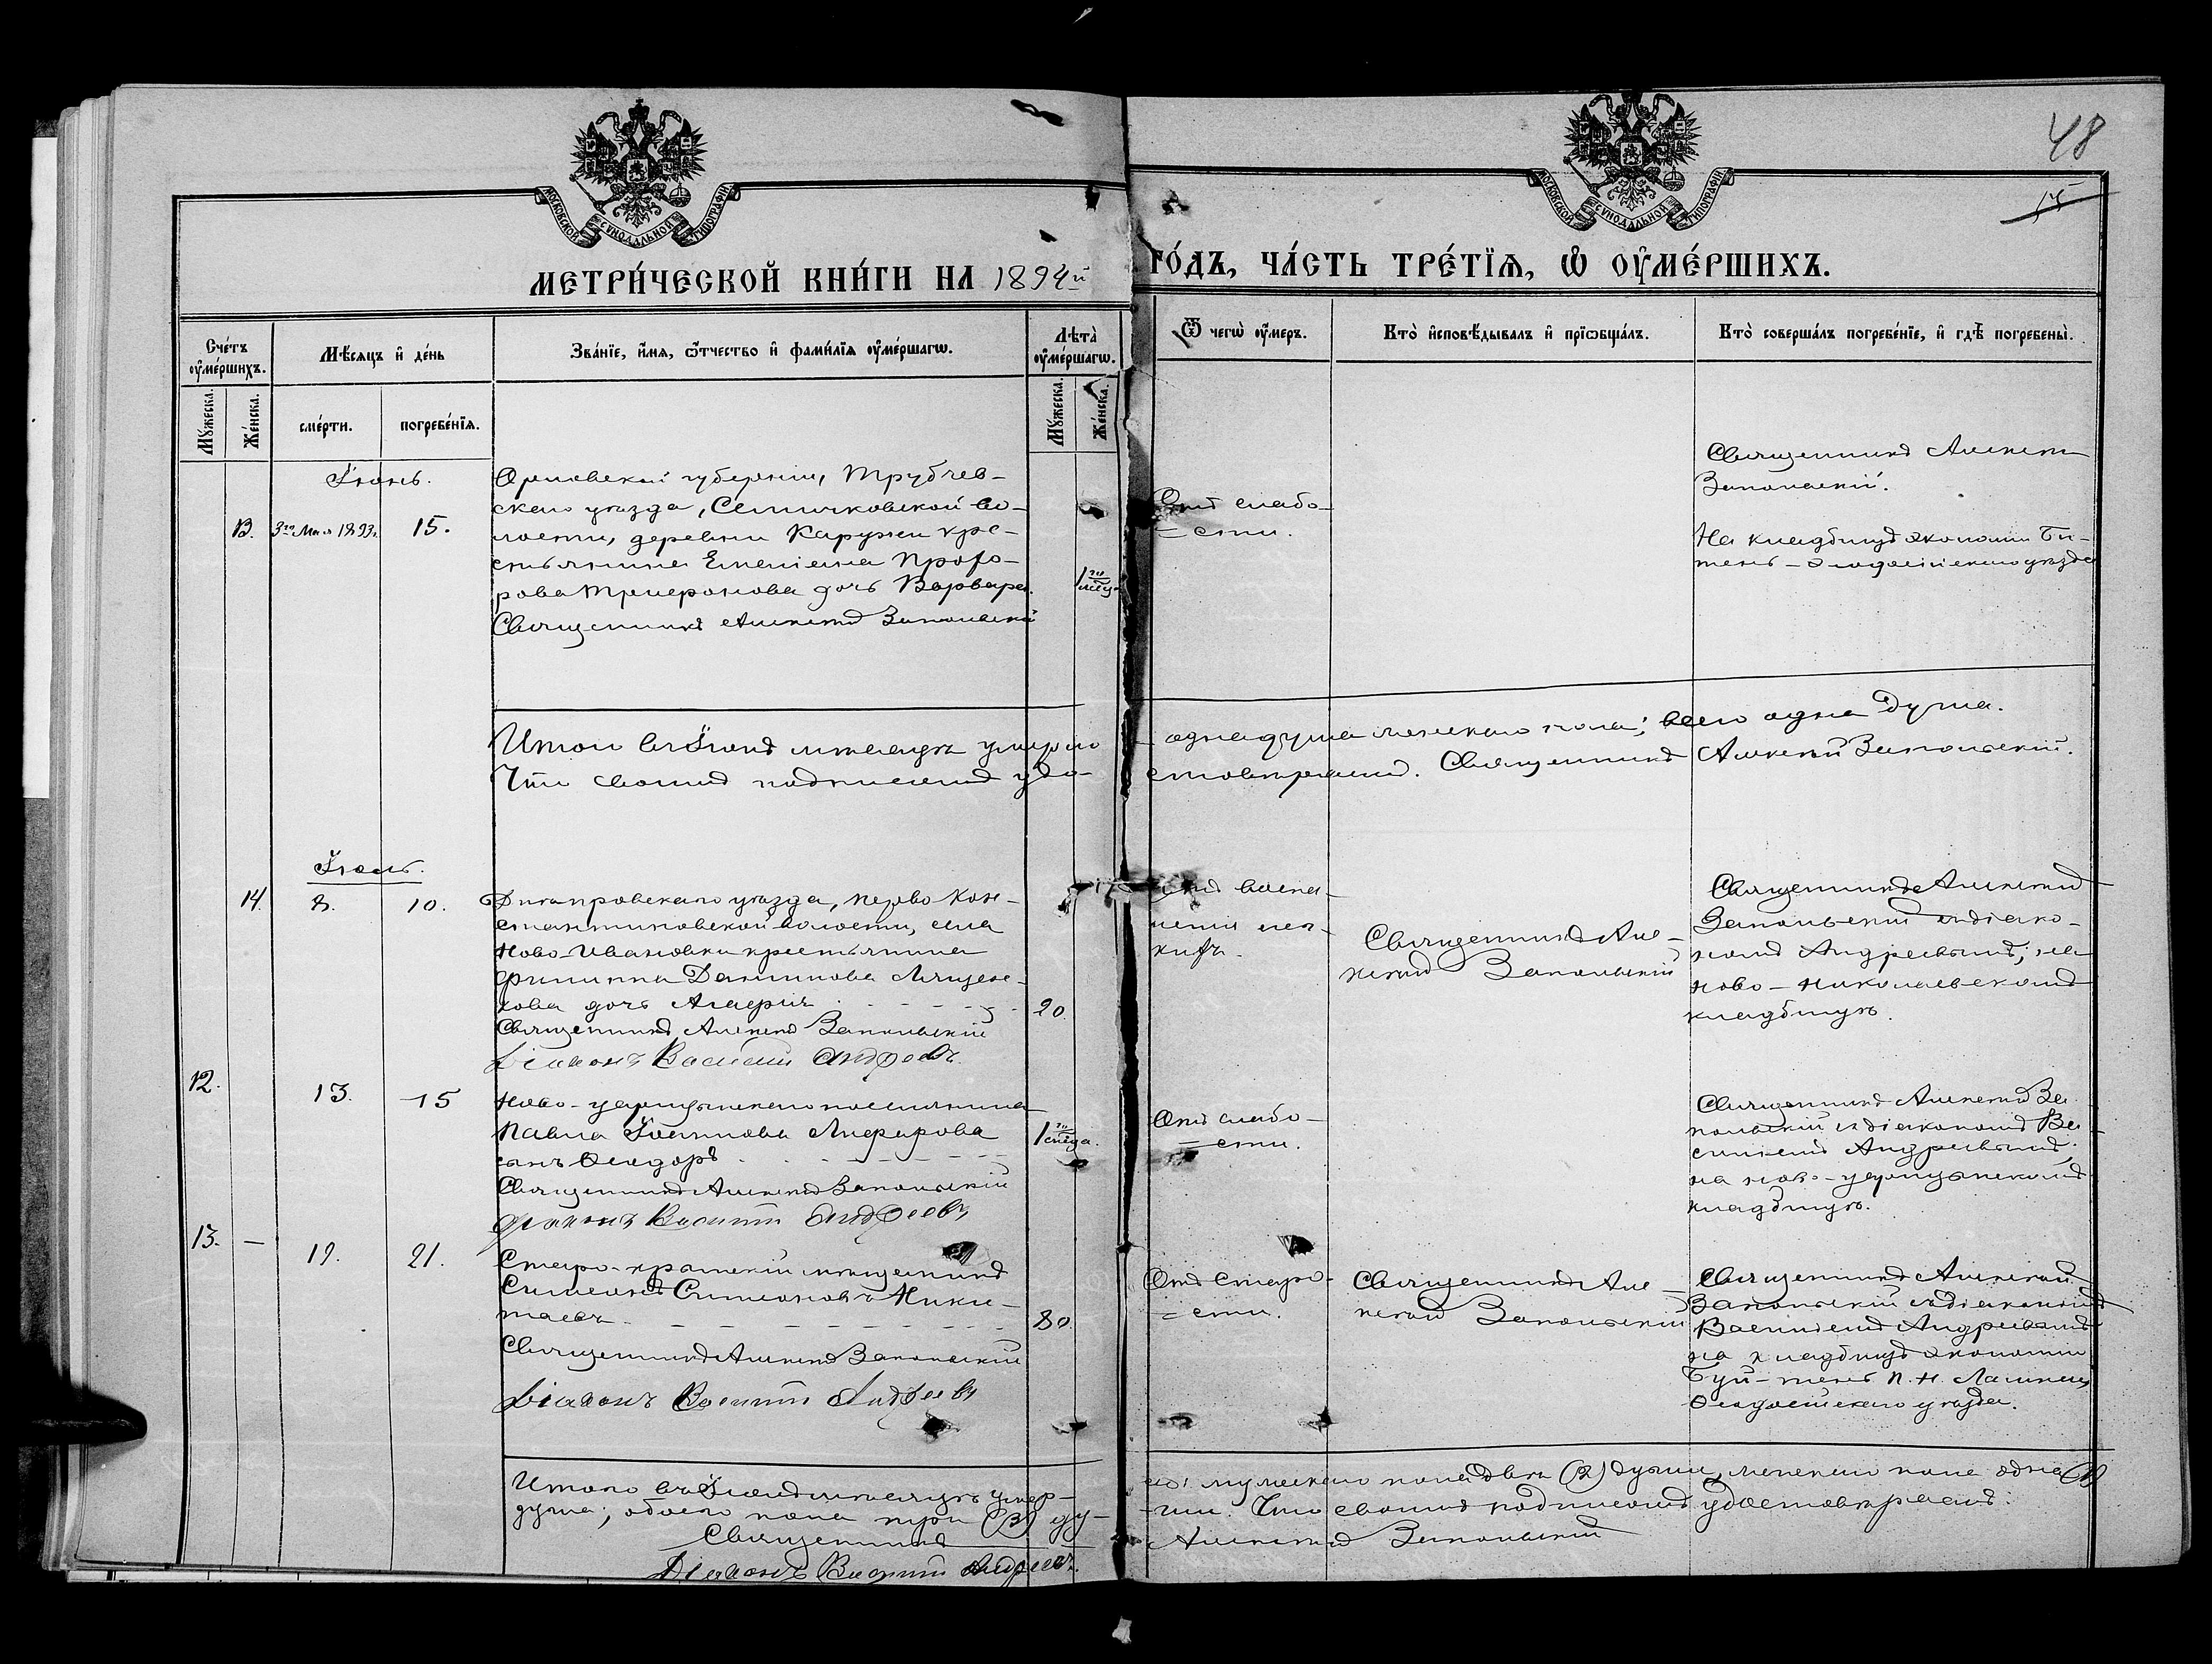 48
15
МОСКОВСКОЙ СѴНОДАЛЬНОЙ ТИПОГРАФІИ
МОСКОВСКОЙ СѴНОДАЛЬНОЙ ТИПОГРАФІИ
МЕТРИ́ЧЕСКОЙ КНИ́ГИ НА 1894й ГО́ДЪ, ЧА́СТЬ ТРЕ́ТІѦ, Ѡ ОУМЕ́РШИХЪ.
Сче́тъ оуме́ршихъ.
Мѣ́сяцъ и де́нь
Зва́ніе, и́мя, ѻ́тчество и фами́лія оуме́ршагѡ.
Лѣта̀ оуме́ршагѡ.
Ѿ чегѡ̀ оу́меръ.
Кто̀ исповѣ́дывалъ и прїѡбща́лъ.
Кто̀ соверша́лъ погребе́ніе, и гдѣ̀ погребены̀.
Мꙋ́жеска.
Же́нска.
сме́рти.
погребе́нія.
Мꙋ́жеска.
Же́нска.
Іюнь.
13.
3го Мая 1893г.
15.
Орловской губерніи, Трубчев-
скаго уѣзда, Семячковской во-
лости, деревни Каружи кре-
стьянина Емеліана Прохо-
рова Трифонова дочь Варвара.
Священникъ Алексій Запольскій
1го мѣся.
Отъ слабо-
сти.
Священникъ Алексій
Запольскій.
На кладбищѣ экономіи Би-
тень - Ѳеодосійскаго уѣзда
Итого въ Іюнѣ мѣсяцѣ умерло одна душа женскаго пола; всего одна душа.
Что своимъ подписомъ удо-стовѣряемъ. Священникъ Алексій Запольскій.
Іюль.
14.
8.
10.
Днѣпровскаго уѣзда, перво Кон-
стантиновской волости, села
Ново-Ивановки крестьянина
Филиппа Данилова Лящен-
кова дочь Агафія
20.
Священникъ Алексій Запольскій
Діаконъ Василій Андреевъ.
Отъ воспа-
ленія лег-
кихъ.
Священникъ Але-
ксій Запольскій
Священникъ Алексій
Запольскій съ діако-
номъ Андреевымъ, на
ново-николаевскомъ
кладбищѣ.
12.
13.
15
Ново-царицынскаго поселянина
Павла Іоаннова
сынъ Ѳеодоръ
1го мѣсяца.
Священникъ Алексій Запольскій
Діаконъ Василій Андреевъ
Отъ слабо-
сти.
Священникъ Алексій За-
польскій съ діакономъ Ва-
силіемъ Андреевымъ,
на ново-царицынскомъ
кладбищѣ.
13.
—
19.
21.
Старо-крымскій мѣщанинъ
Симеонъ Симеоновъ Ники-
таевъ
80.
Священникъ Алексій Запольскій
Діаконъ Василій Андреевъ
Отъ старо-
сти.
Священникъ Але-
ксій Запольскій
Священникъ Алексій
Запольскій съ діакономъ
Василіемъ Андреевымъ
на кладбищѣ экономіи
Буй-тень П. Н.
Ѳеодосійскаго уѣзда.
Итого въ Іюлѣ мѣсяцѣ умер-ло: мужескаго пола двѣ (2) души, женскаго пола одна (1)
душа; обоего пола три (3) ду-ши. Что своимъ подписомъ удостовѣряемъ:
Священникъ Алексій Запольскій
Діаконъ Василій Андреевъ.